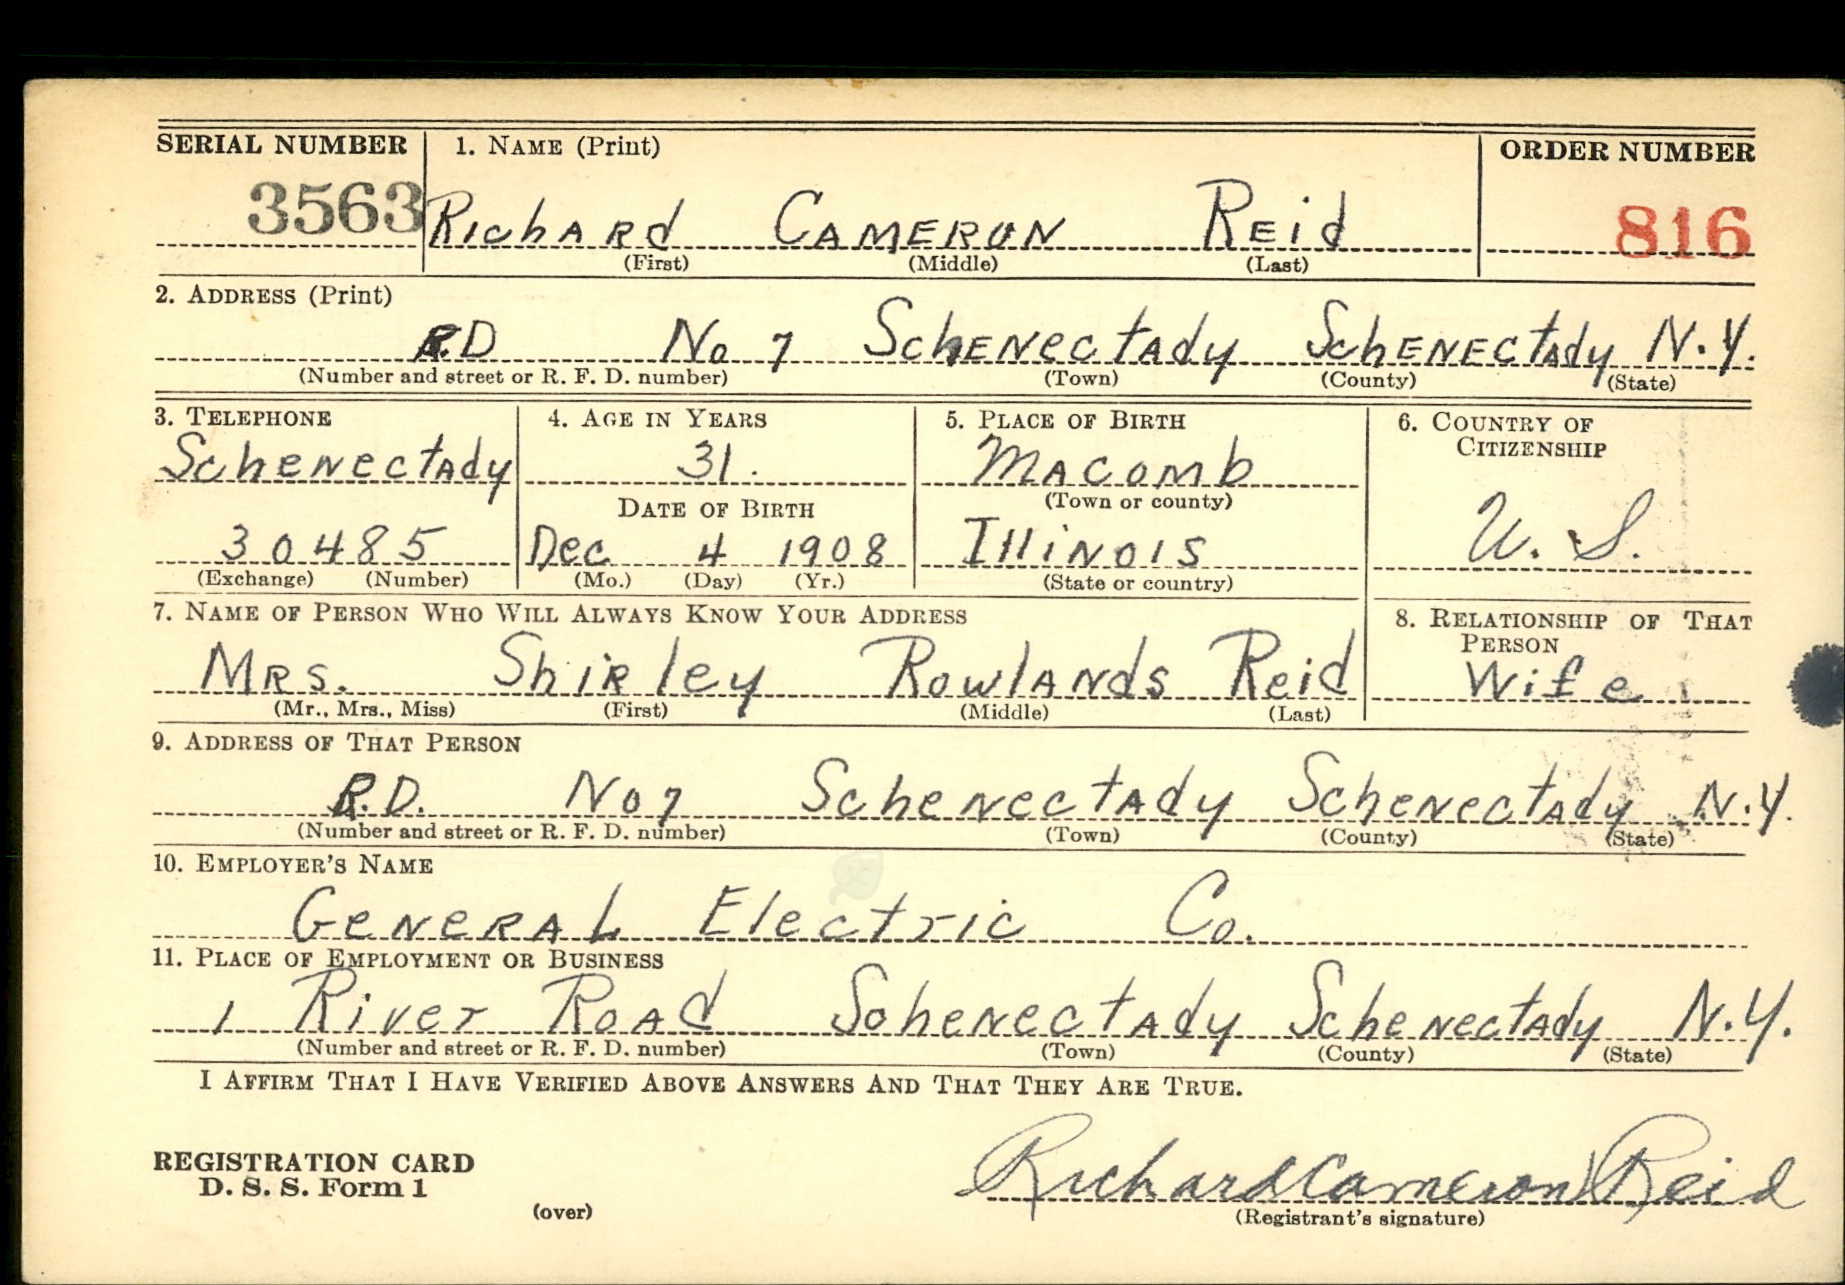 SERIAL NUMBER 1. NAME (Print) ORDER NUMBER
3563 Richard Cameron Reid 816
(First) (Middle) (Last)
2. ADDRESS (Print)
R.D No 7 Schenectady Schenectady N.Y.
(Number and street or R. F. D. number) (Town) (County) (State)
3. TELEPHONE 4. AGE IN YEARS 5. PLACE OF BIRTH 6. COUNTRY OF
CITIZENSHIP
Schenectady 31. Macomb
(Town or county)
DATE OF BIRTH
30485 Dec 4 1908 Illinois U. S.
(Exchange) (Number) (Mo.) (Day) (Yr.) (State or country)
7. NAME OF PERSON WHO WILL ALWAYS KNOW YOUR ADDRESS 8. RELATIONSHIP OF THAT
PERSON
Mrs. Shirley Rowlands Reid Wife
(Mr., Mrs., Miss) (First) (Middle) (Last)
9. ADDRESS OF THAT PERSON
R.D. No 7 Schenectady Schenectady N.Y.
(Number and street or R. F. D. number) (Town) (County) (State)
10. EMPLOYER'S NAME
General Electric Co.
11. PLACE OF EMPLOYMENT OR BUSINESS
1 River Road Schenectady Schenectady N.Y.
(Number and street or R. F. D. number) (Town) (County) (State)
I AFFIRM THAT I HAVE VERIFIED ABOVE ANSWERS AND THAT THEY ARE TRUE.
REGISTRATION CARD
D. S. S. Form 1 Richard Cameron Reid
(over) (Registrant's signature)